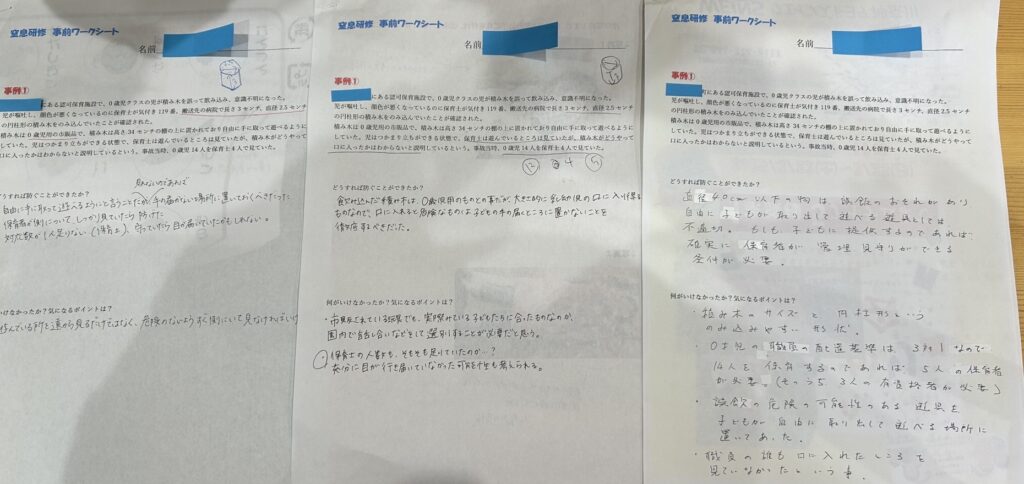 窒息研修 事前ワークシート
名前
事例①
にある認可保育施設で、0歳児クラスの児が積み木を誤って飲み込み、意識不明になった。
児が嘔吐し、顔色が悪くなっているのに保育士が気付き119番、搬送先の病院で長さ3センチ、直径2.5センチ
の円柱形の積み木をのみ込んでいたことが確認された。
積み木は0歳児用の市販品で、積み木は高さ34センチの棚の上に置かれており自由に手に取って遊べるように
していた。児はつかまり立ちができる状態で、保育士は遊んでいるところは見ていたが、積み木がどうやって
口に入ったかはわからないと説明しているという。事故当時、0歳児14人を保育士4人で見ていた。
どうすれば防ぐことができたか?
見れないのであれば
自由に手に取って遊べるようにと言うことだが手の届かない場所に置いておくべきだった
保育者が側について、しっかり見ていたら防げた
対応数が1人足りない(保育士)、守っていたら目が届いていたかもしれない。
何がいけなかったか?気になるポイントは?
遊んでいる所を遠から見るだけではなく、危険のないようすぐ側にいて見なければいけ
窒息研修 事前ワークシート
名前
事例①
にある認可保育施設で、0歳児クラスの児が積み木を誤って飲み込み、意識不明になった。
児が嘔吐し、顔色が悪くなっているのに保育士が気付き119番、搬送先の病院で長さ3センチ、直径2.5センチ
の円柱形の積み木をのみ込んでいたことが確認された。
積み木は0歳児用の市販品で、積み木は高さ34センチの棚の上に置かれており自由に手に取って遊べるように
していた。児はつかまり立ちができる状態で、保育士は遊んでいるところは見ていたが、積み木がどうやって
口に入ったかはわからないと説明しているという。事故当時、0歳児14人を保育士4人で見ていた。
4
どうすれば防ぐことができたか?
飲み込んだ積み木は、0歳児用のものとの事だが、大きさ的に乳幼児の口に入り得る
ものなので、口に入れると危険なものは子どもの手の届くところに置かないことを
徹底するべきだった。
何がいけなかったか?気になるポイントは?
・市販されている玩具でも、実際みている子どもたちに合ったものなのか、
園内で話し合いなどをして選別することが必要だと思う。
・保育士の人数も、そもそも足りていたのか…?
充分に目が行き届いていなかった可能性も考えられる。
窒息研修 事前ワークシート
名前
事例①
町にある認可保育施設で、0歳児クラスの児が積み木を誤って飲み込み、意識不明になった。
児が嘔吐し、顔色が悪くなっているのに保育士が気付き119番、搬送先の病院で長さ3センチ、直径2.5センチ
の円柱形の積み木をのみ込んでいたことが確認された。
積み木は0歳児用の市販品で、積み木は高さ34センチの棚の上に置かれており自由に手に取って遊べるように
していた。児はつかまり立ちができる状態で、保育士は遊んでいるところは見ていたが、積み木がどうやって
口に入ったかはわからないと説明しているという。事故当時、0歳児14人を保育士4人で見ていた。
どうすれば防ぐことができたか?
直径4.0cm以下の物は、誤飲のおそれがあり
自由に子どもが取り出して遊べる遊具としては
不適切。もしも子どもに提供するのであれば
確実に保育者が管理見守りができる
条件が必要。
何がいけなかったか?気になるポイントは?
・積み木のサイズと円柱形という
のみ込みやすい形状。
・0才児の職員の配置基準は3対1なので
14人を保育するのであれば5人の保育者
が必要。(そのうち3人の有資格者が必要)
・誤飲の危険の可能性のある遊具を
子どもが自由に取り出して遊べる場所に
置いてあった。
・職員の誰も口に入れたところを
見ていなかったという事。